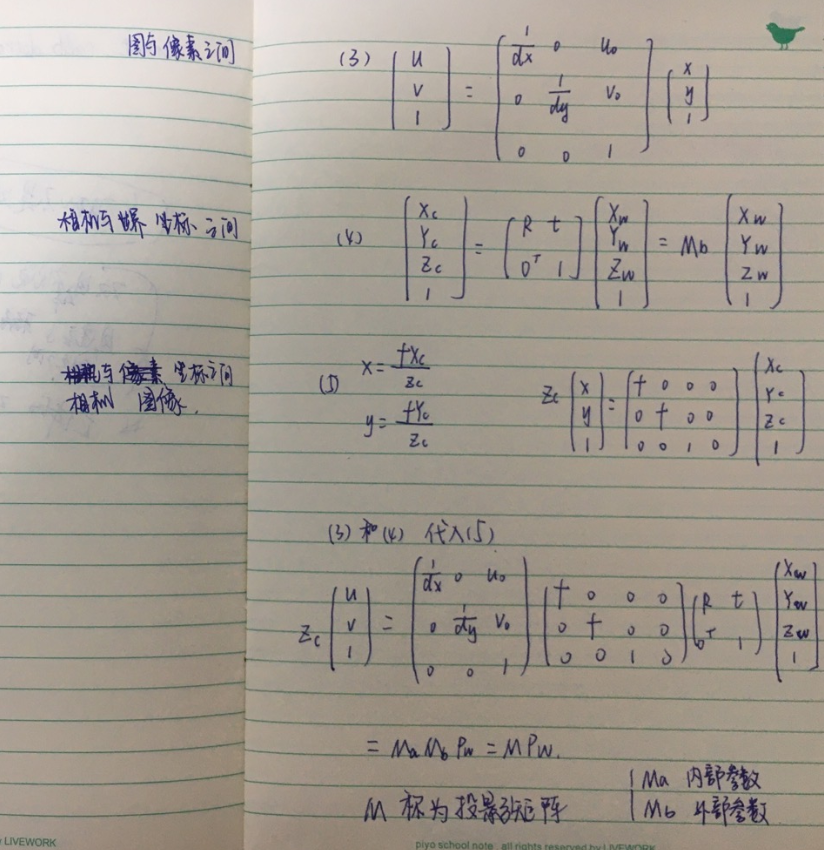 图与像素之间
(3) [u v 1] = [1/dx 0 u₀; 0 1/dy v₀; 0 0 1] [x y 1]
相机与世界坐标之间
(4) [Xc Yc Zc 1] = [R t; 0ᵀ 1] [Xw Yw Zw 1] = Mb [Xw Yw Zw 1]
相机与像素坐标之间
相机 图像.
(5) x = fXc/Zc
y = fYc/Zc
Zc [x y 1] = [f 0 0 0; 0 f 0 0; 0 0 1 0] [Xc Yc Zc 1]
(3)和(4) 代入(5)
Zc [u v 1] = [1/dx 0 u₀; 0 1/dy v₀; 0 0 1] [f 0 0 0; 0 f 0 0; 0 0 1 0] [R t; 0ᵀ 1] [Xw Yw Zw 1]
= Ma Mb Pw = M Pw.
M 称为投影矩阵
Ma 内部参数
Mb 外部参数
LIVEWORK
piyo school note all rights reserved by LIVEWORK